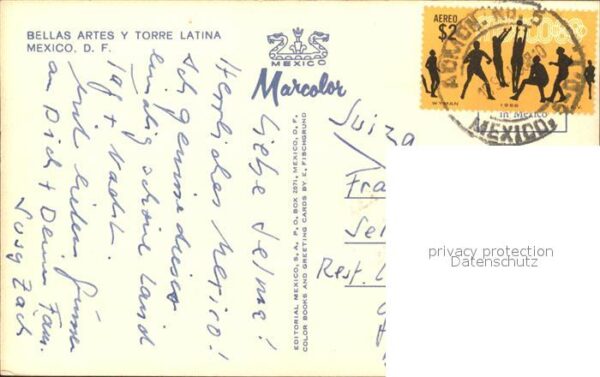 BELLAS ARTES Y TORRE LATINA
MEXICO, D. F.
MEXICO
Marcolor
EDITORIAL MEXICO, S.A. P. O. BOX 2971, MEXICO, D. F.
COLOR BOOKS AND GREETING CARDS BY E. FISCHGRUND
AEREO
$2
WYMAN
1968
in Mexico
ADMON. NO. 5
MEXICO,
Liebe Selma!
Herrliches Mexico!
Ich geniesse dieses
einmalig schöne Land
Tag + Nacht.
Mit lieben Grüssen
an Dich + Deine Fam.
Susy Zach
Suiza
Fra
Sel
Rest.
privacy protection
Datenschutz